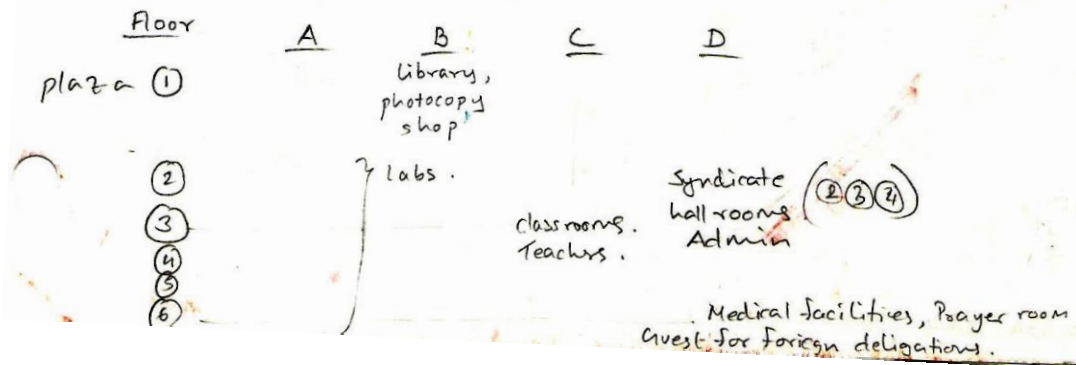 Floor A B C D
plaza ① library,
photocopy
shop
② labs. Syndicate (② ③ ④)
③ classrooms. hall rooms
Teachrs. Admin
④
⑤
⑥ Medical facilities, Prayer room
Guest for foriegn deligations.